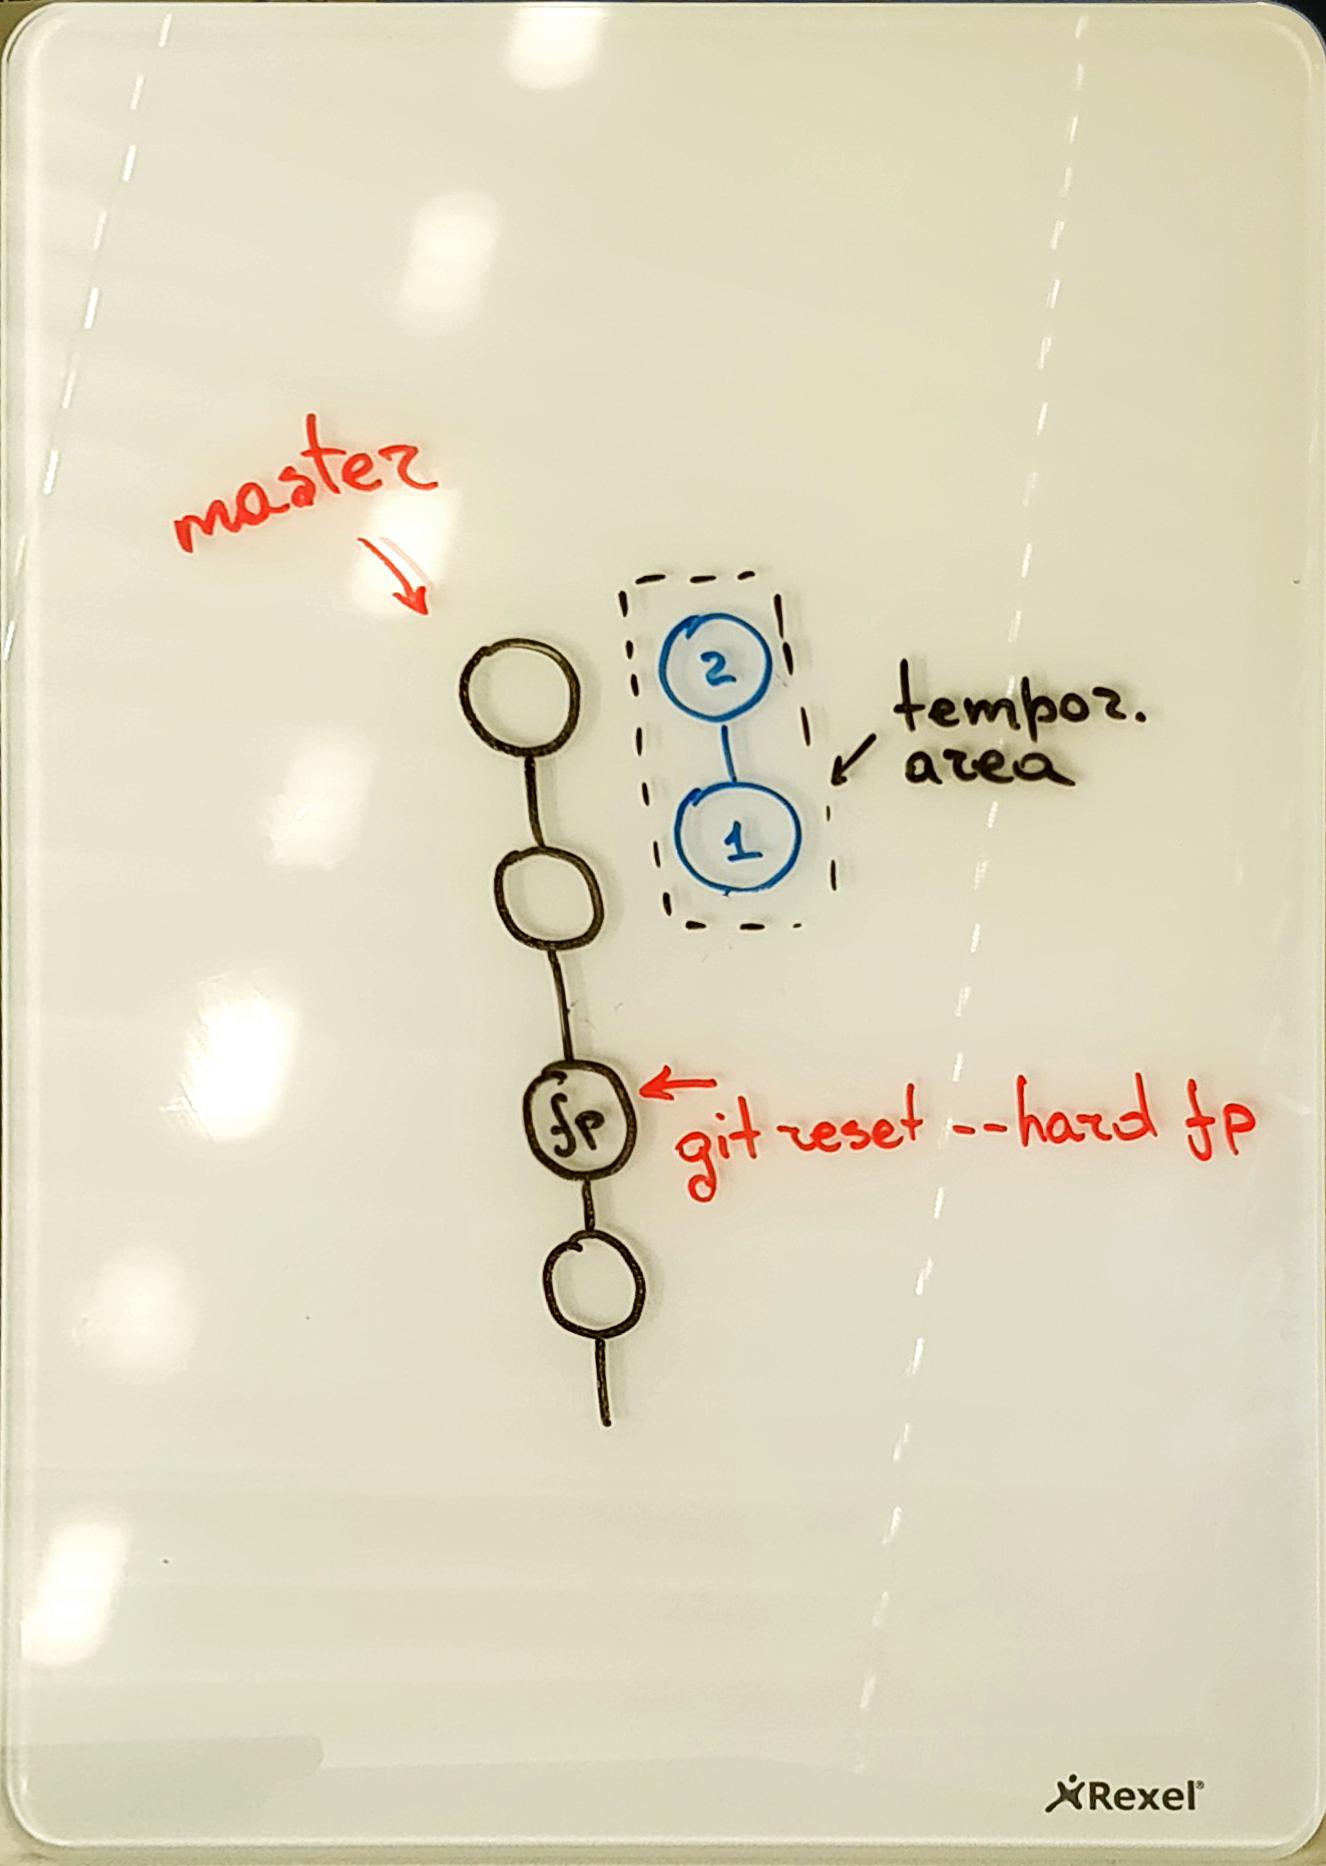 master
2
tempor.
area
1
fp
git reset --hard fp
Rexel®